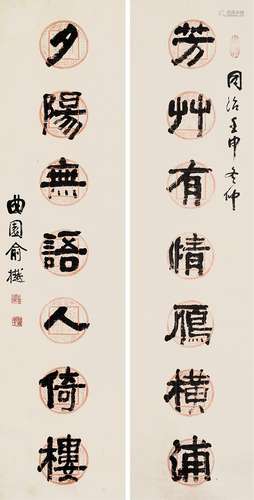 同治壬申冬仲
芳艸有情鴈橫浦
夕陽無語人倚樓
曲園俞樾